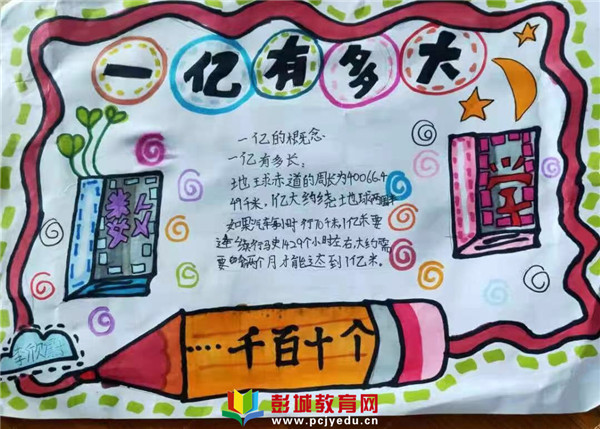 一亿有多大
一亿的概念
一亿有多长。
地球赤道的周长为40066.4
49千米,1亿大约绕地球两周半
如果汽车每小时行70千米,1亿米要
连续行驶1429个小时左右,大约需
要两个月才能达到1亿米。
数
学
千百十个
李欣
彭城教育网
www.pcjyedu.cn